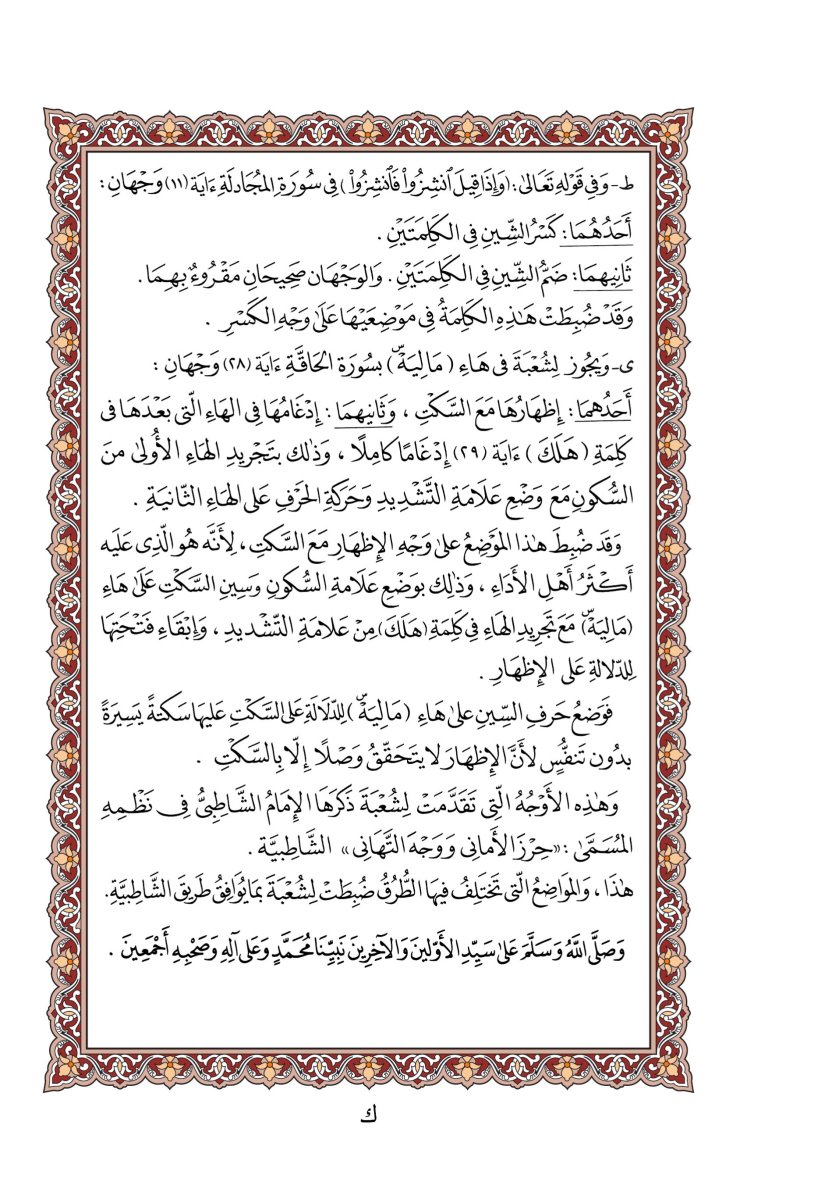 ط- وَفِي قَوْلِهِ تَعَالىٰ: (وَإِذَا قِيلَ ٱنشِزُواْ فَٱنشِزُواْ) فِي سُورَةِ المُجَادلَةِ ءَايَة (١١) وَجْهَانِ :
أَحَدُهُمَا: كَسْرُ الشِّينِ فِي الكَلِمَتَيْنِ .
ثَانِيهِمَا: ضَمُّ الشِّينِ فِي الكَلِمَتَيْنِ . وَالوَجْهَان صَحِيحَانِ مَقْرُوءٌ بِهِمَا .
وَقَدْ ضُبِطَتْ هَـٰذِهِ الكَلِمَةُ فِي مَوْضِعَيْهَا عَلَىٰ وَجْهِ الكَسْرِ .
ى- وَيَجُوز لِشُعْبَةَ فى هَاءِ ( مَالِيَهْۜ ) بسُورَةِ الحَاقَّةِ ءَايَة (٢٨) وَجْهَانِ :
أَحَدُهمَا: إِظهَارُهَا مَعَ السَّكْتِ ، وَثَانِيهمَا : إِدْغَامُهَا فِي الهَاءِ الّتى بَعْدَهَا فى
كَلِمَةِ ( هَلَكَ ) ءَايَة (٢٩) إِدْغَامًا كامِلًا ، وَذٰلك بتَجْرِيدِ الهَاءِ الأُولىٰ منَ
السُّكونِ مَعَ وَضْعِ عَلَامَةِ التَّشْدِيدِ وَحَرَكةِ الحَرْفِ عَلى الهَاءِ الثّانيَةِ .
وَقَد ضُبِطَ هٰذا المَوْضِعُ علىٰ وَجْهِ الإظهَارِ مَعَ السَّكتِ ، لِأَنَّه هُو الّذِى عَلَيه
أَكْثَرُ أَهْلِ الأَدَاءِ ، وَذٰلِك بوَضْعِ عَلَامةِ السُّكونِ وَسِينِ السَّكْتِ عَلَىٰ هَاءِ
(مَالِيَهْۜ) مَعَ تَجرِيدِ الهَاءِ فِي كَلِمَةِ (هَلَكَ) مِنْ عَلَامَةِ التّشْديدِ ، وَإِبْقَاءِ فَتْحَتِهَا
لِلدّلالةِ عَلى الإِظهَارِ .
فَوَضعُ حَرفِ السِّينِ علىٰ هَاءِ ( مَالِيَهْۜ ) لِلدّلَالَةِ عَلى السَّكْتِ عَليهَا سَكتَةً يَسِيرَةً
بدُون تَنفُّسٍ لأنَّ الإِظهَارَ لا يَتحَقّقُ وَصْلًا إِلّا بِالسَّكْتِ .
وَهٰذِه الأَوْجُهُ الّتِى تَقَدَّمَتْ لِشُعْبَةَ ذَكَرَهَا الإمَامُ الشَّاطِبِىُّ فِى نَظْمِهِ
المُسَمَّىٰ : «حِرْزَ الأمانِى وَوَجْهَ التَّهَانِى» الشَّاطبِيَّة .
هٰذَا ، وَالمَوَاضِعُ الّتى تَختَلِفُ فيهَا الطُّرُقُ ضُبِطَتْ لِشُعْبَةَ بمَا يُوَافِقُ طَرِيقَ الشَّاطِبيَّةِ.
وَصَلَّى اللَّهُ وَسَلَّمَ عَلىٰ سَيِّدِ الأَوّلينَ وَالآخِرِينَ نَبِيِّنَا مُحَمَّدٍ وَعَلى آلِهِ وَصَحْبِهِ أَجْمَعِينَ .
ك